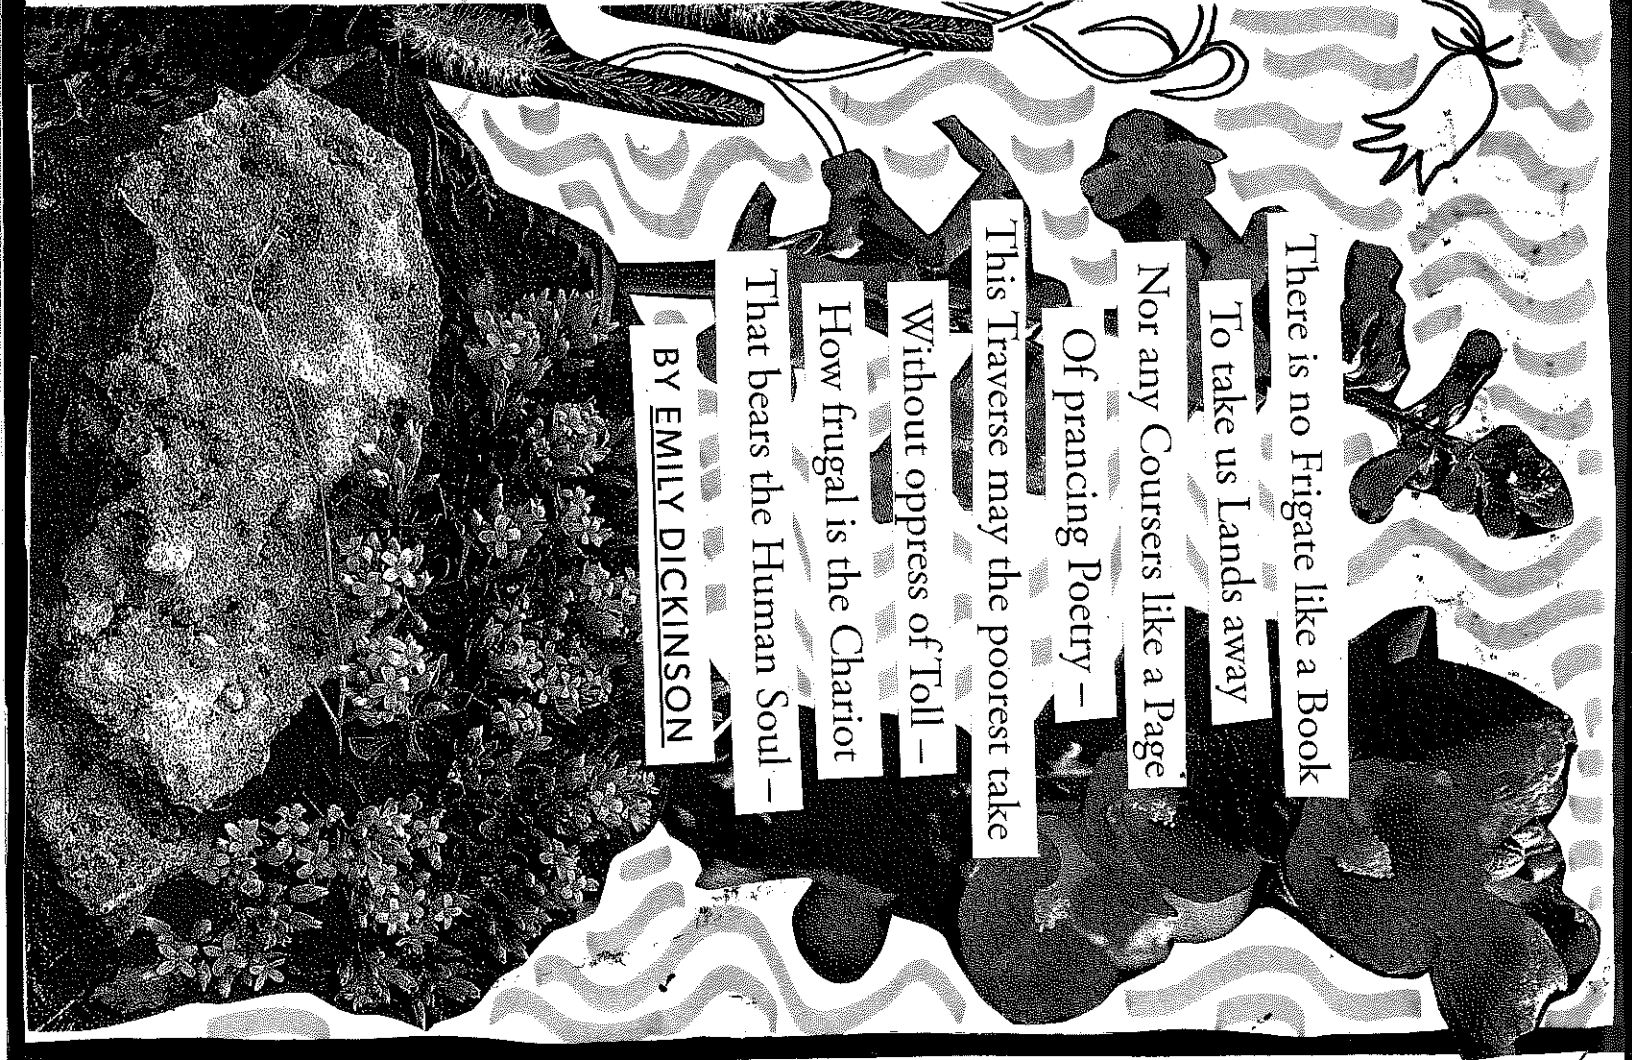 There is no Frigate like a Book
To take us Lands away
Nor any Coursers like a Page
Of prancing Poetry –
This Traverse may the poorest take
Without oppress of Toll –
How frugal is the Chariot
That bears the Human Soul –
BY EMILY DICKINSON